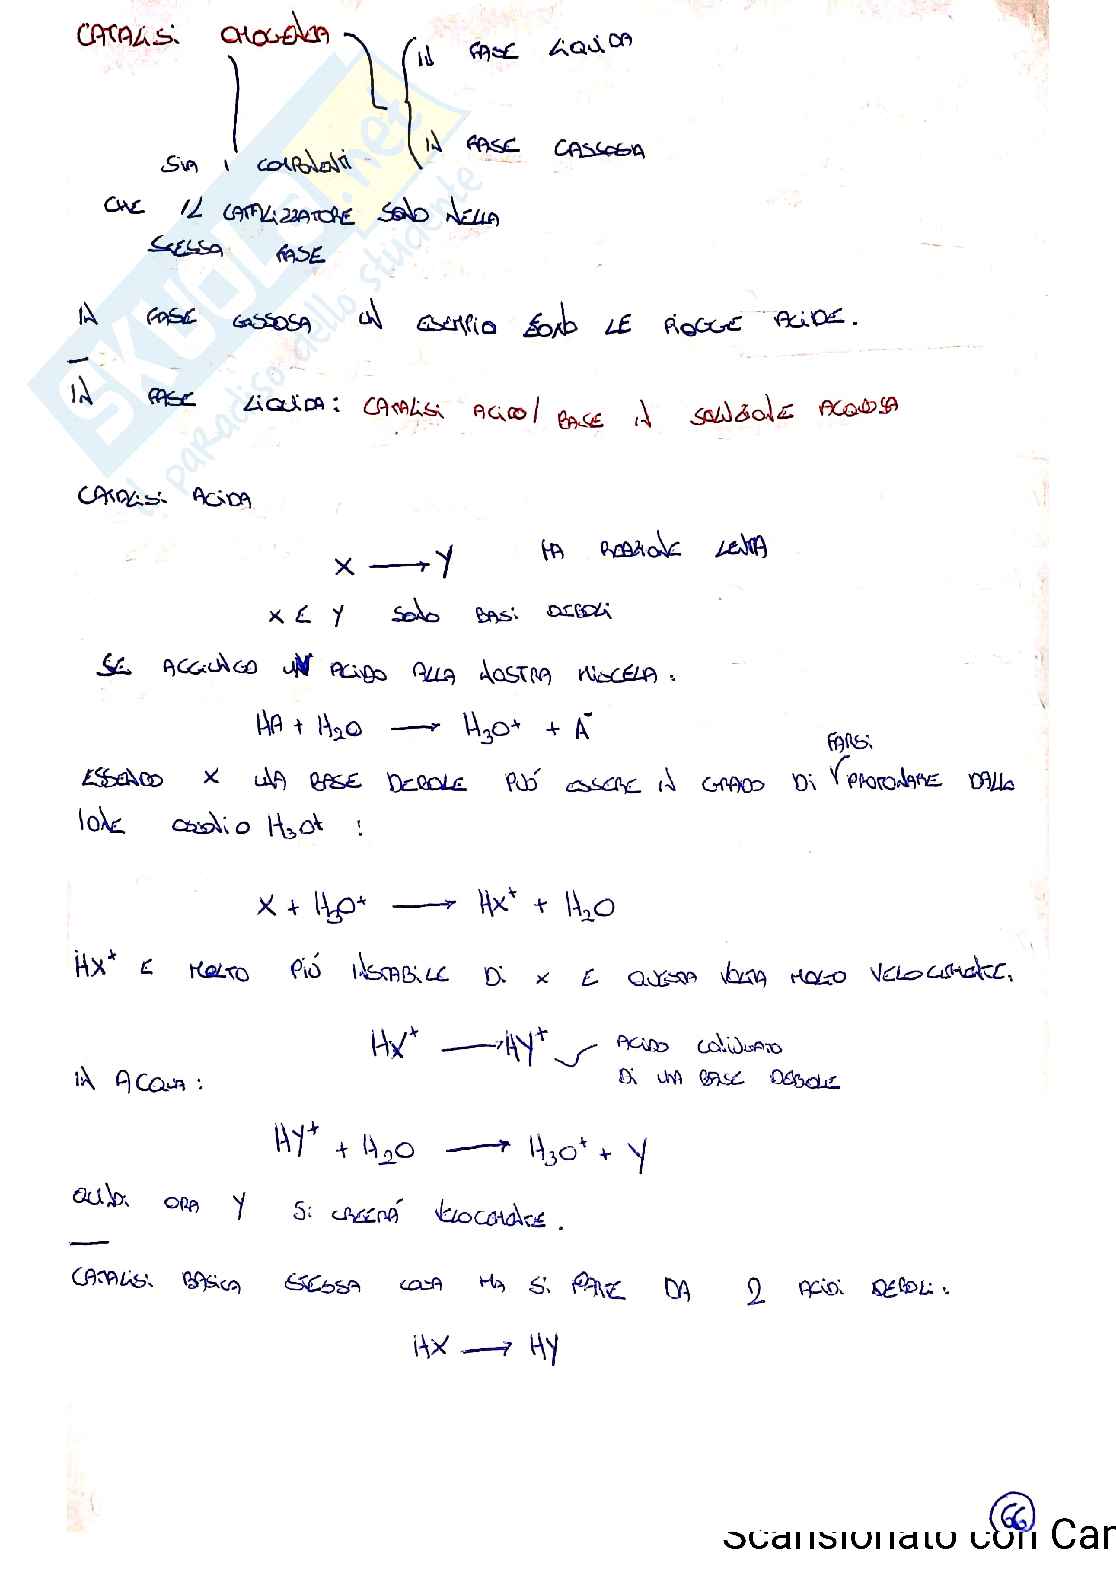 CATALISI OMOGENEA
IN FASE LIQUIDA
IN FASE GASSOSA
SIA I COMPONENTI
CHE IL CATALIZZATORE SONO NELLA
STESSA FASE
IN FASE GASSOSA UN ESEMPIO SONO LE PIOGGE ACIDE.
IN FASE LIQUIDA: CATALISI ACIDO/BASE IN SOLUZIONE ACQUOSA
CATALISI ACIDA
X → Y HA REAZIONE LENTA
X E Y SONO BASI DEBOLI
SE AGGIUNGO UN ACIDO ALLA NOSTRA MISCELA:
HA + H₂O → H₃O⁺ + A⁻
FARSI
ESSENDO X UNA BASE DEBOLE PUÓ ESSERE IN GRADO DI PROTONARE DALLO
IONE OSSONIO H₃O⁺ :
X + H₃O⁺ → HX⁺ + H₂O
HX⁺ E MOLTO PIÚ INSTABILE DI X E QUESTA VOLTA MOLTO VELOCEMENTE.
HX⁺ → HY⁺ ACIDO CONIUGATO
DI UNA BASE DEBOLE
IN ACQUA:
HY⁺ + H₂O → H₃O⁺ + Y
QUINDI ORA Y SI CREERÁ VELOCEMENTE.
CATALISI BASICA STESSA COSA MA SI PARTE DA 2 ACIDI DEBOLI:
HX → HY
66
Scansionato con Cam
SKUOLA.net
il paradiso dello studente